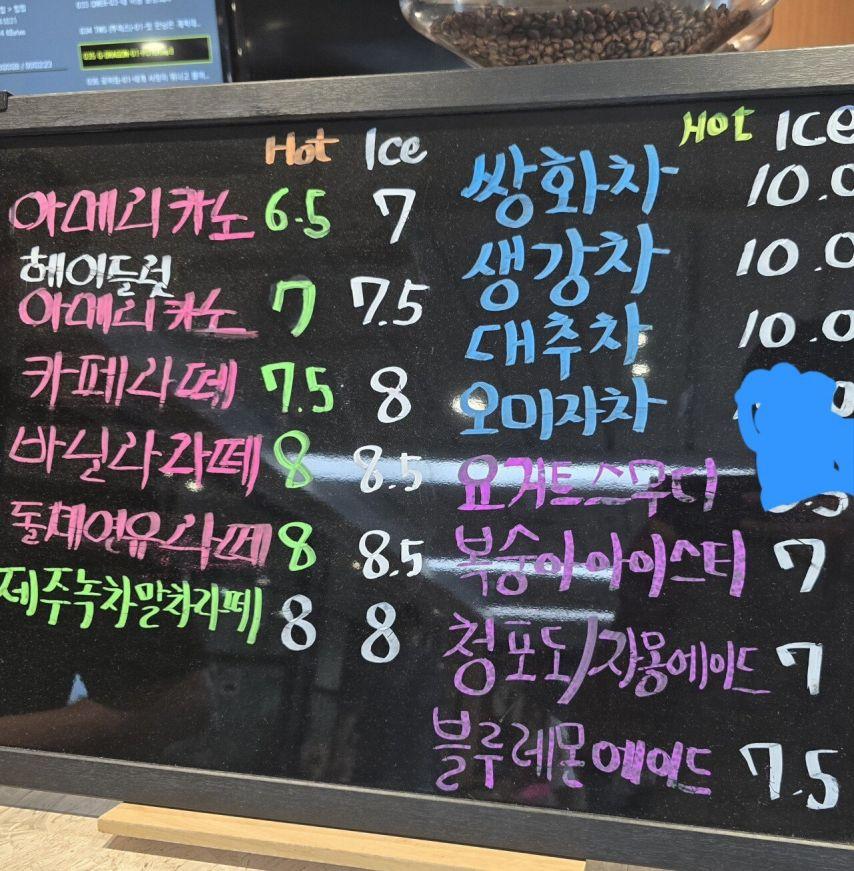 Hot Ice
아메리카노 6.5 7
헤이듈럿
아메리카노 7 7.5
카페라떼 7.5 8
바닐라라떼 8 8.5
돌체연유라떼 8 8.5
제주녹차말차라떼 8 8
Hot Ice
쌍화차 10.0
생강차 10.0
대추차 10.0
오미자차
요거트스무디
복숭아아이스티 7
청포도/자몽에이드 7
블루레몬에이드 7.5